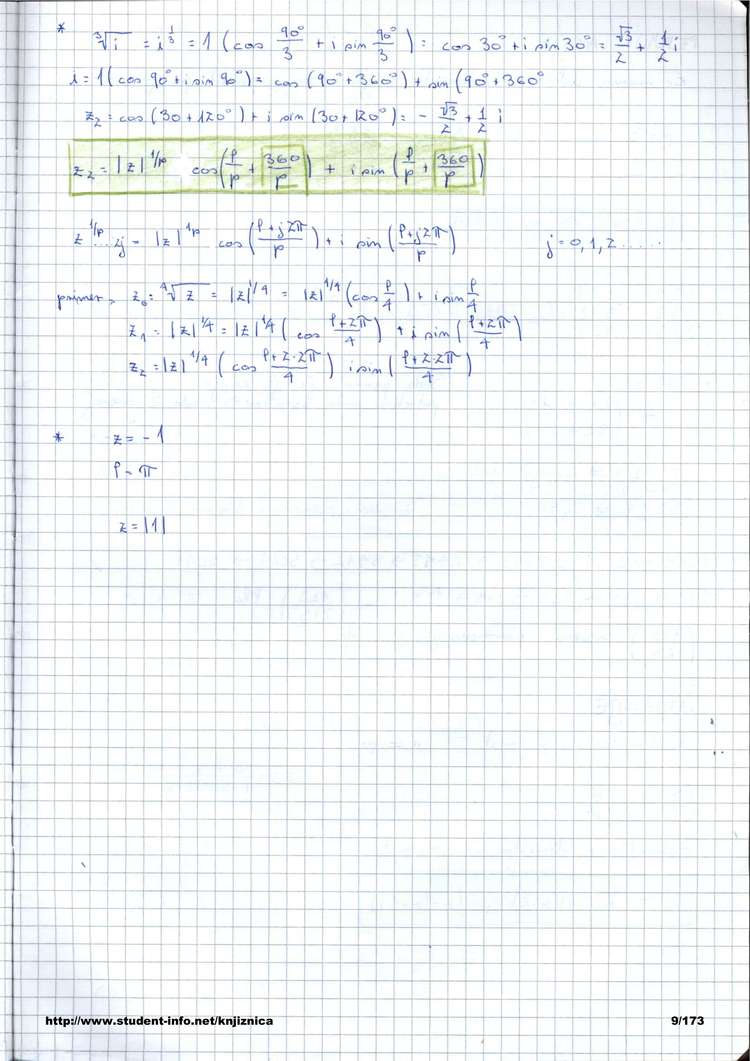 * ∛i = i^(1/3) = 1 (cos 90°/3 + i sin 90°/3) = cos 30° + i sin 30° = √3/2 + 1/2 i
i = 1(cos 90° + i sin 90°) = cos (90° + 360°) + sin (90° + 360°
z₂ = cos (30 + 120°) + i sin (30 + 120°) = - √3/2 + 1/2 i
z₂ = |z|^(1/p) cos(φ/p + 360/p) + i sin (φ/p + 360/p)
z^(1/p) ... zj = |z|^(1/p) cos (φ + j2π/p) + i sin (φ + j2π/p) j = 0, 1, 2 .....
primer, z₀ = ∜z = |z|^(1/4) = |z|^(1/4) (cos φ/4) + i sin φ/4
z₁ = |z|^(1/4) = |z|^(1/4) ( cos φ+2π/4 ) + i sin ( φ+2π/4 )
z₂ = |z|^(1/4) ( cos φ+2·2π/4 ) i sin ( φ+2·2π/4 )
* z = -1
φ = π
z = |1|
http://www.student-info.net/knjiznica 9/173